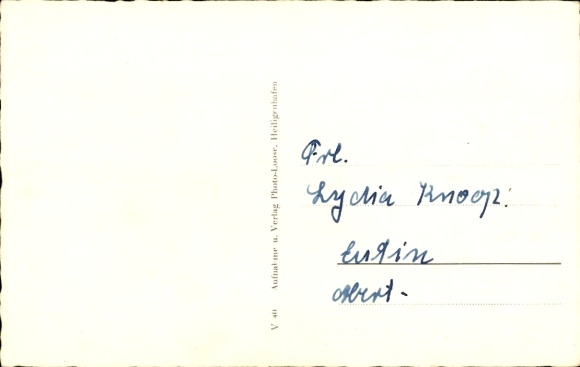 V 40 Aufnahme u. Verlag Photo-Loose, Heiligenhafen
Frl.
Lydia Knoop.
Eutin